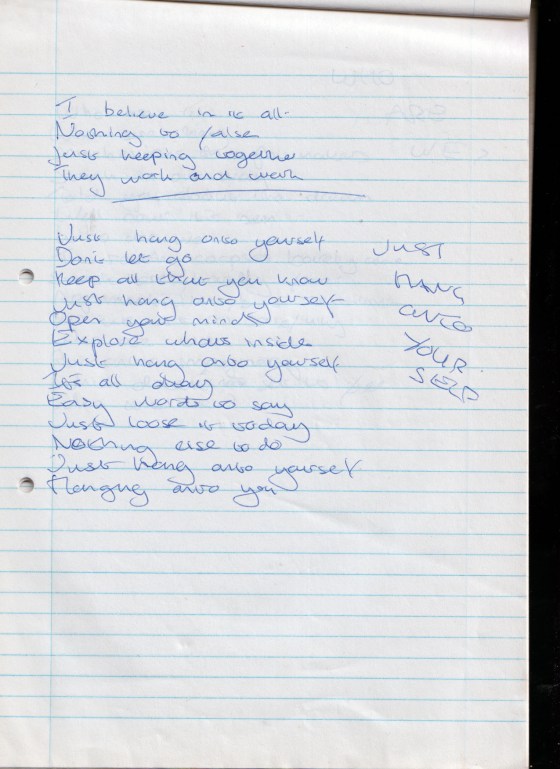 I believe in it all
Nothing to false
Just keeping together
They work and work
Just hang onto yourself
Don't let go
Keep all that you know
Just hang onto yourself
Open your minds
Explore whats inside
Just hang onto yourself
It's all okay
Easy words to say
Just loose it today
Nothing else to do
Just hang onto yourself
Hanging onto you
JUST
HANG
ONTO
YOUR
SELF